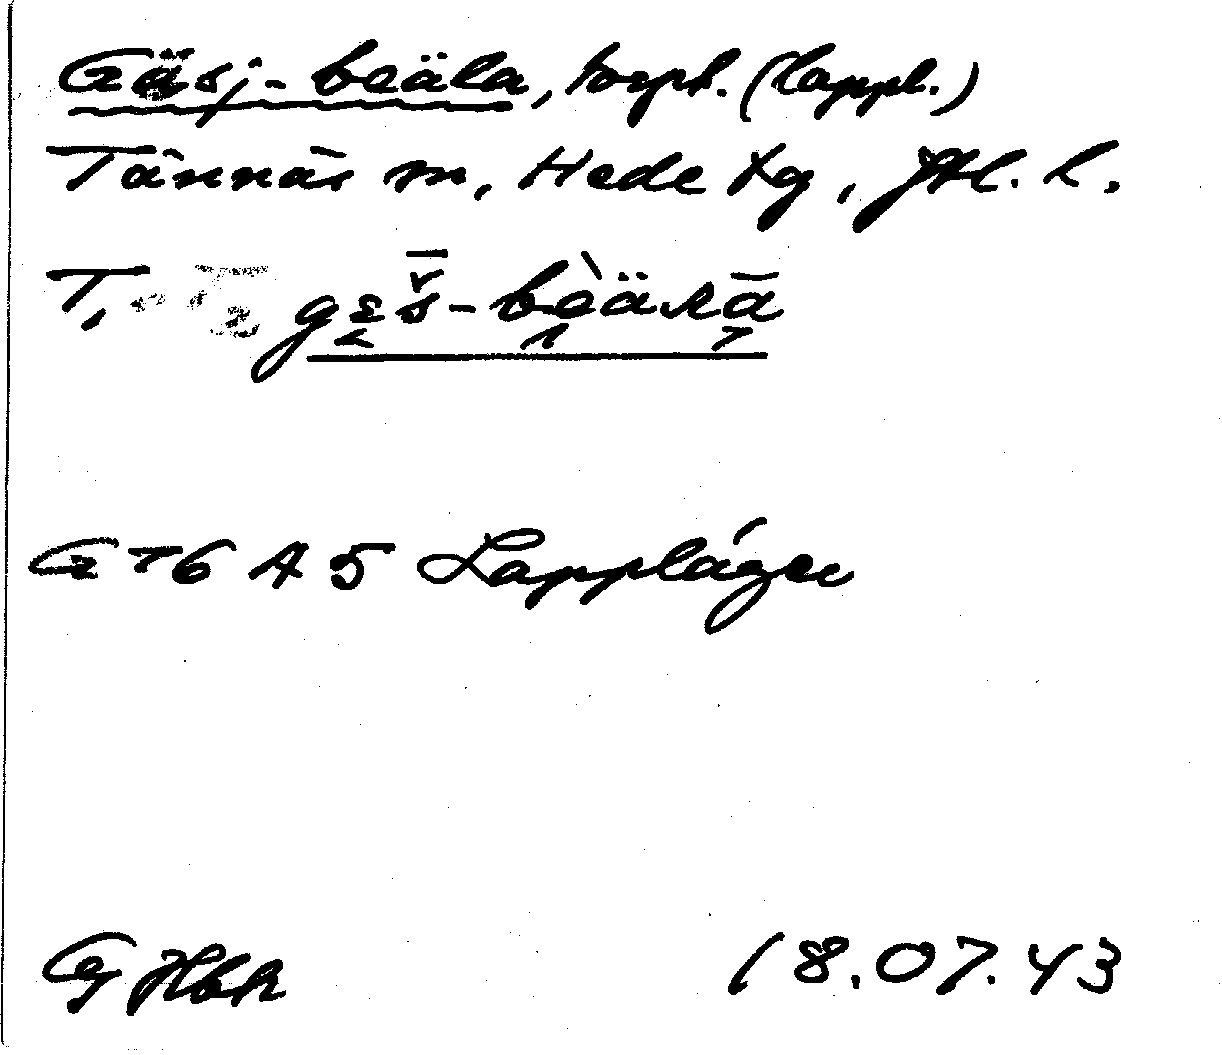 Gäsj-beäla, torpl. (lappl.)
Tännäs sn, Hede tg, Jtl. l.
T. gɛš̄-bèäʀā
G76 A5 Lappläger
G Hbk 18.07.43